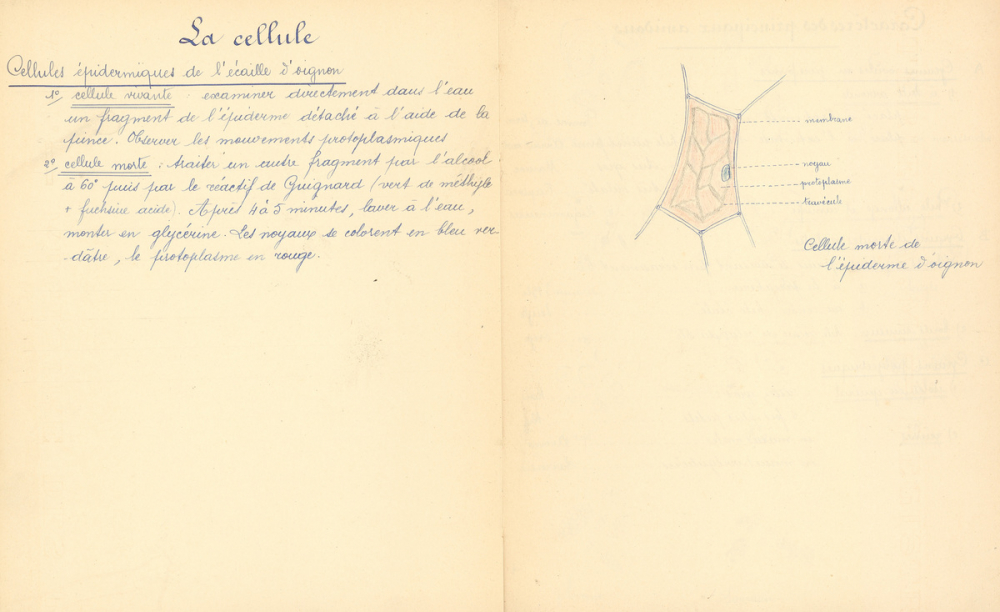 La cellule
Cellules épidermiques de l'écaille d'oignon
1º cellule vivante : examiner directement dans l'eau
un fragment de l'épiderme détaché à l'aide de la
pince. Observer les mouvements protoplasmiques
2º cellule morte : traiter un autre fragment par l'alcool
à 60° puis par le réactif de Guignard (vert de méthyle
+ fuchsine acide). Après 4 à 5 minutes, laver à l'eau,
monter en glycérine. Les noyaux se colorent en bleu ver-
dâtre, le protoplasme en rouge.
membrane
noyau
protoplasme
travécule
Cellule morte de
l'épiderme d'oignon